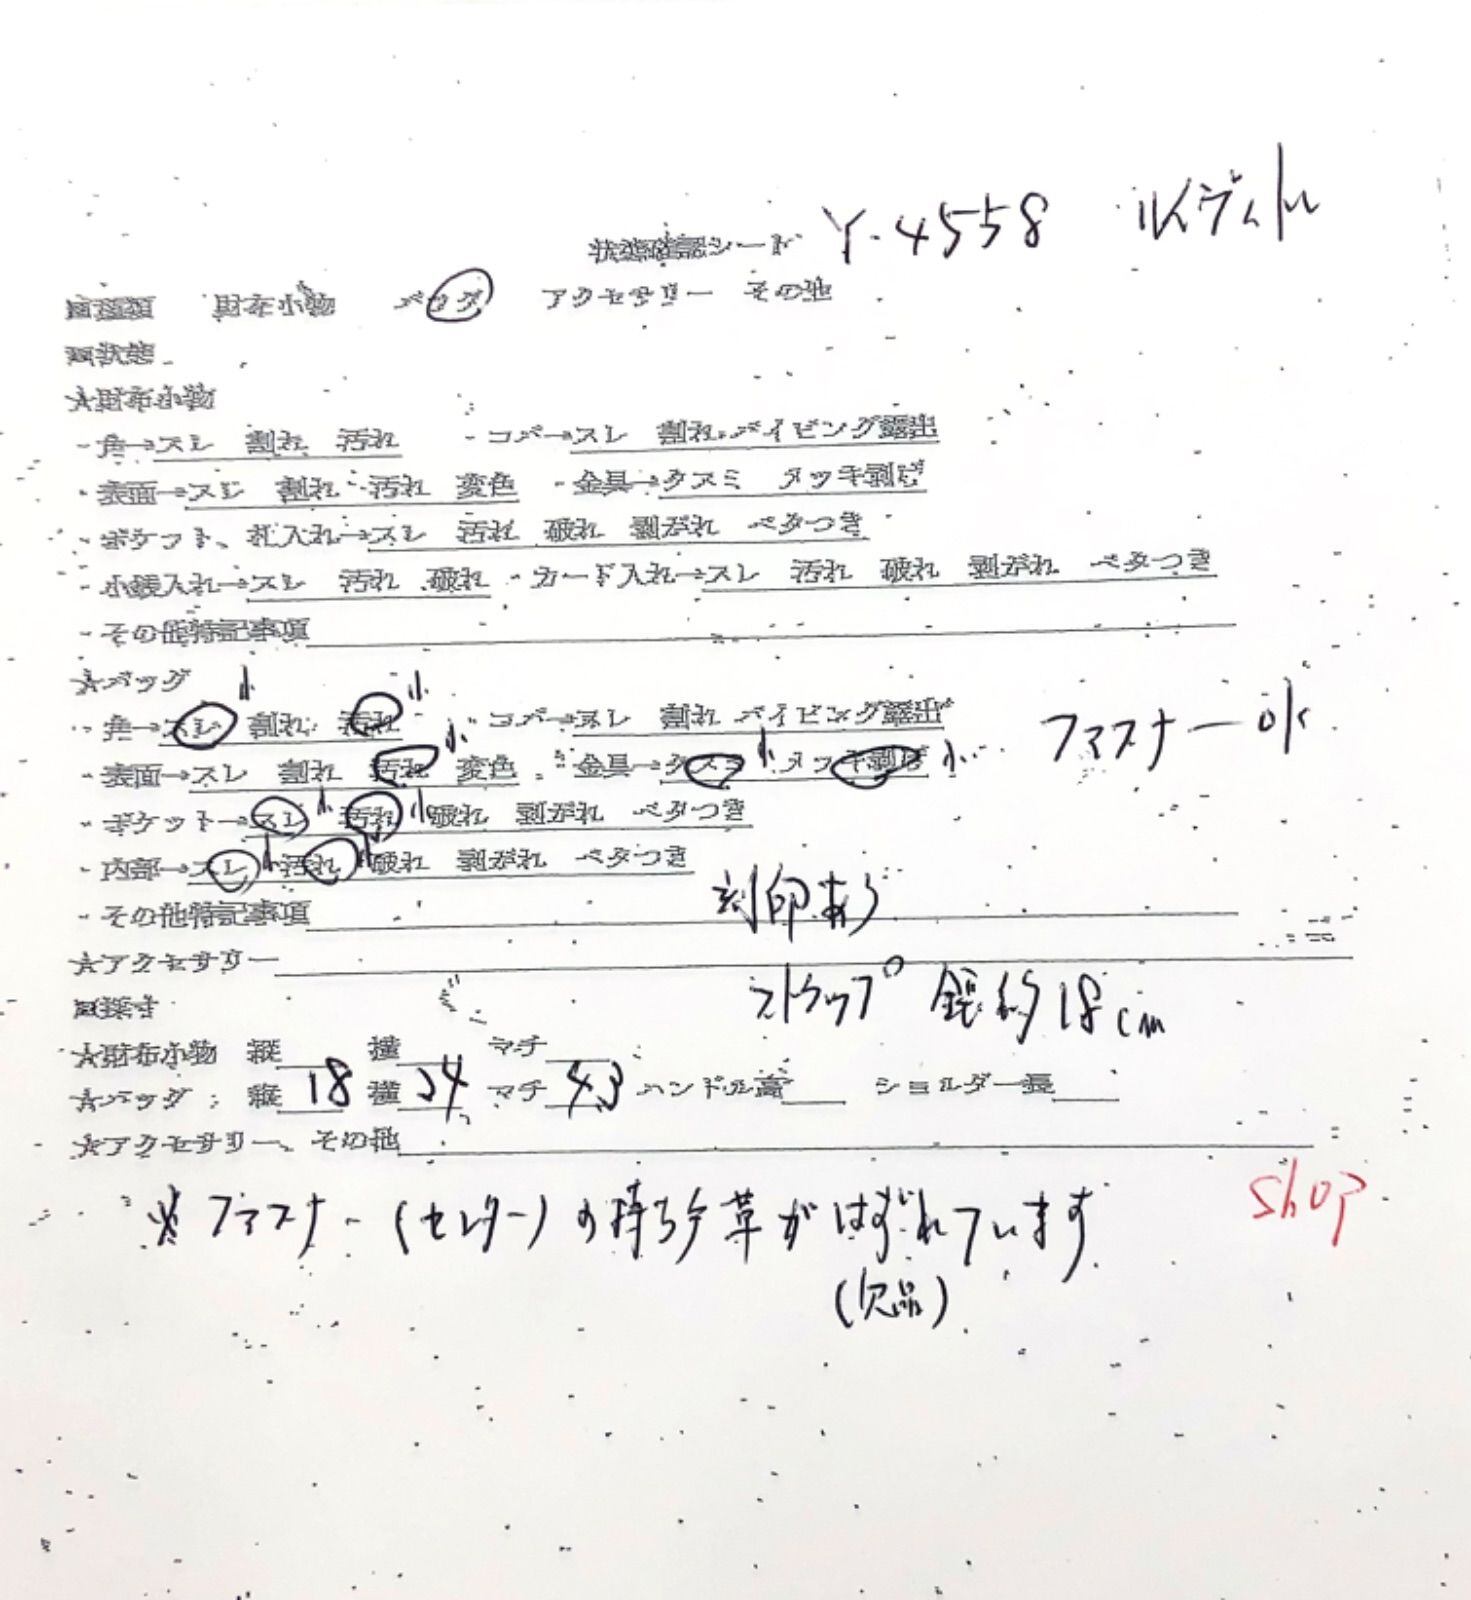 状態確認シート Y-4558 ルイヴィトン
■種類 財布小物 バッグ アクセサリー その他
■状態
★財布小物
・角→スレ 割れ 汚れ ・コバ→スレ 割れ パイピング露出
・表面→スレ 割れ 汚れ 変色 ・金具→クスミ メッキ剥げ
・ポケット、札入れ→スレ 汚れ 破れ 剥がれ ベタつき
・小銭入れ→スレ 汚れ 破れ ・カード入れ→スレ 汚れ 破れ 剥がれ ベタつき
・その他特記事項
★バッグ
・角→スレ小 割れ 汚れ小 ・コバ→スレ 割れ パイピング露出
・表面→スレ 割れ 汚れ小 変色 ・金具→クスミ小 メッキ剥げ小 ファスナーOK
・ポケット→スレ小 汚れ小 破れ 剥がれ ベタつき
・内部→スレ小 汚れ小 破れ 剥がれ ベタつき
・その他特記事項 刻印あり
★アクセサリー
■採寸 ストラップ 約18cm
★財布小物 縦 横 マチ
★バッグ 縦 18 横 24 マチ 4.3 ハンドル高 ショルダー長
★アクセサリー、その他
shop
※ファスナー(センター)の持ち手革がはずれています
(欠品)